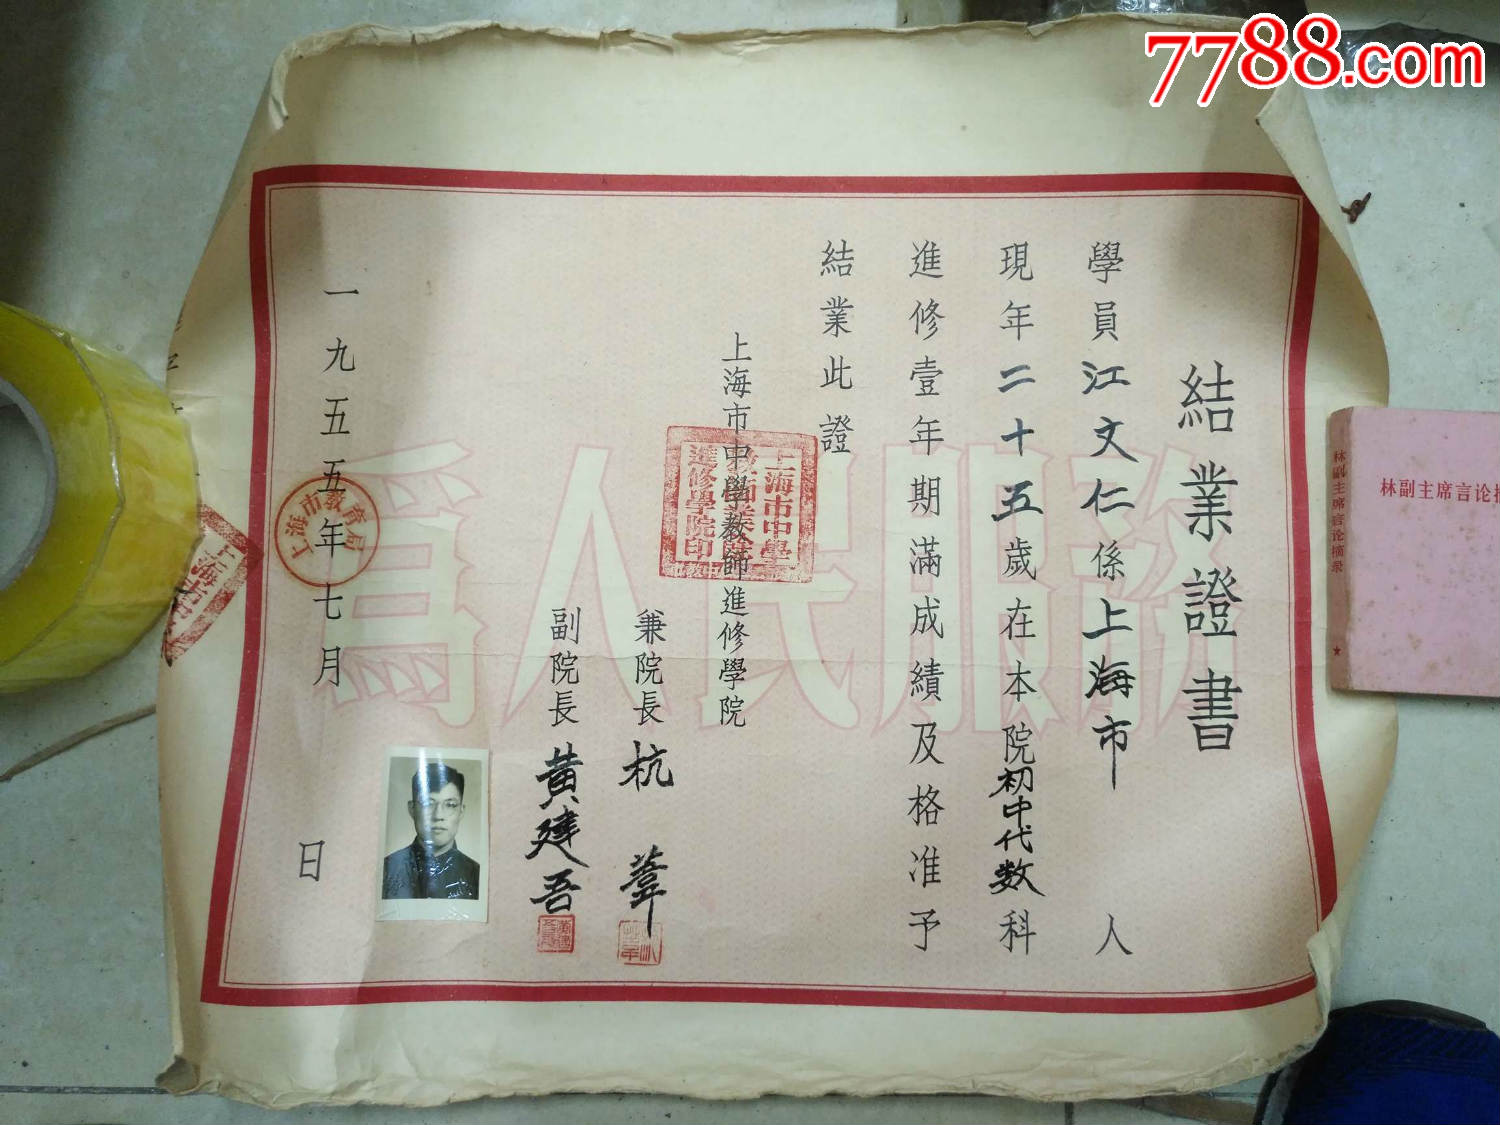 7788.com
結業證書
學員江文仁係上海市人
現年二十五歲在本院初中代数科
進修壹年期滿成績及格准予
結業此證
上海市中學教師進修學院
兼院長杭葦
副院長黄建吾
一九五五年七月日
為人民服務
上海市教育局
林副主席言论摘录
林副主席言论摘